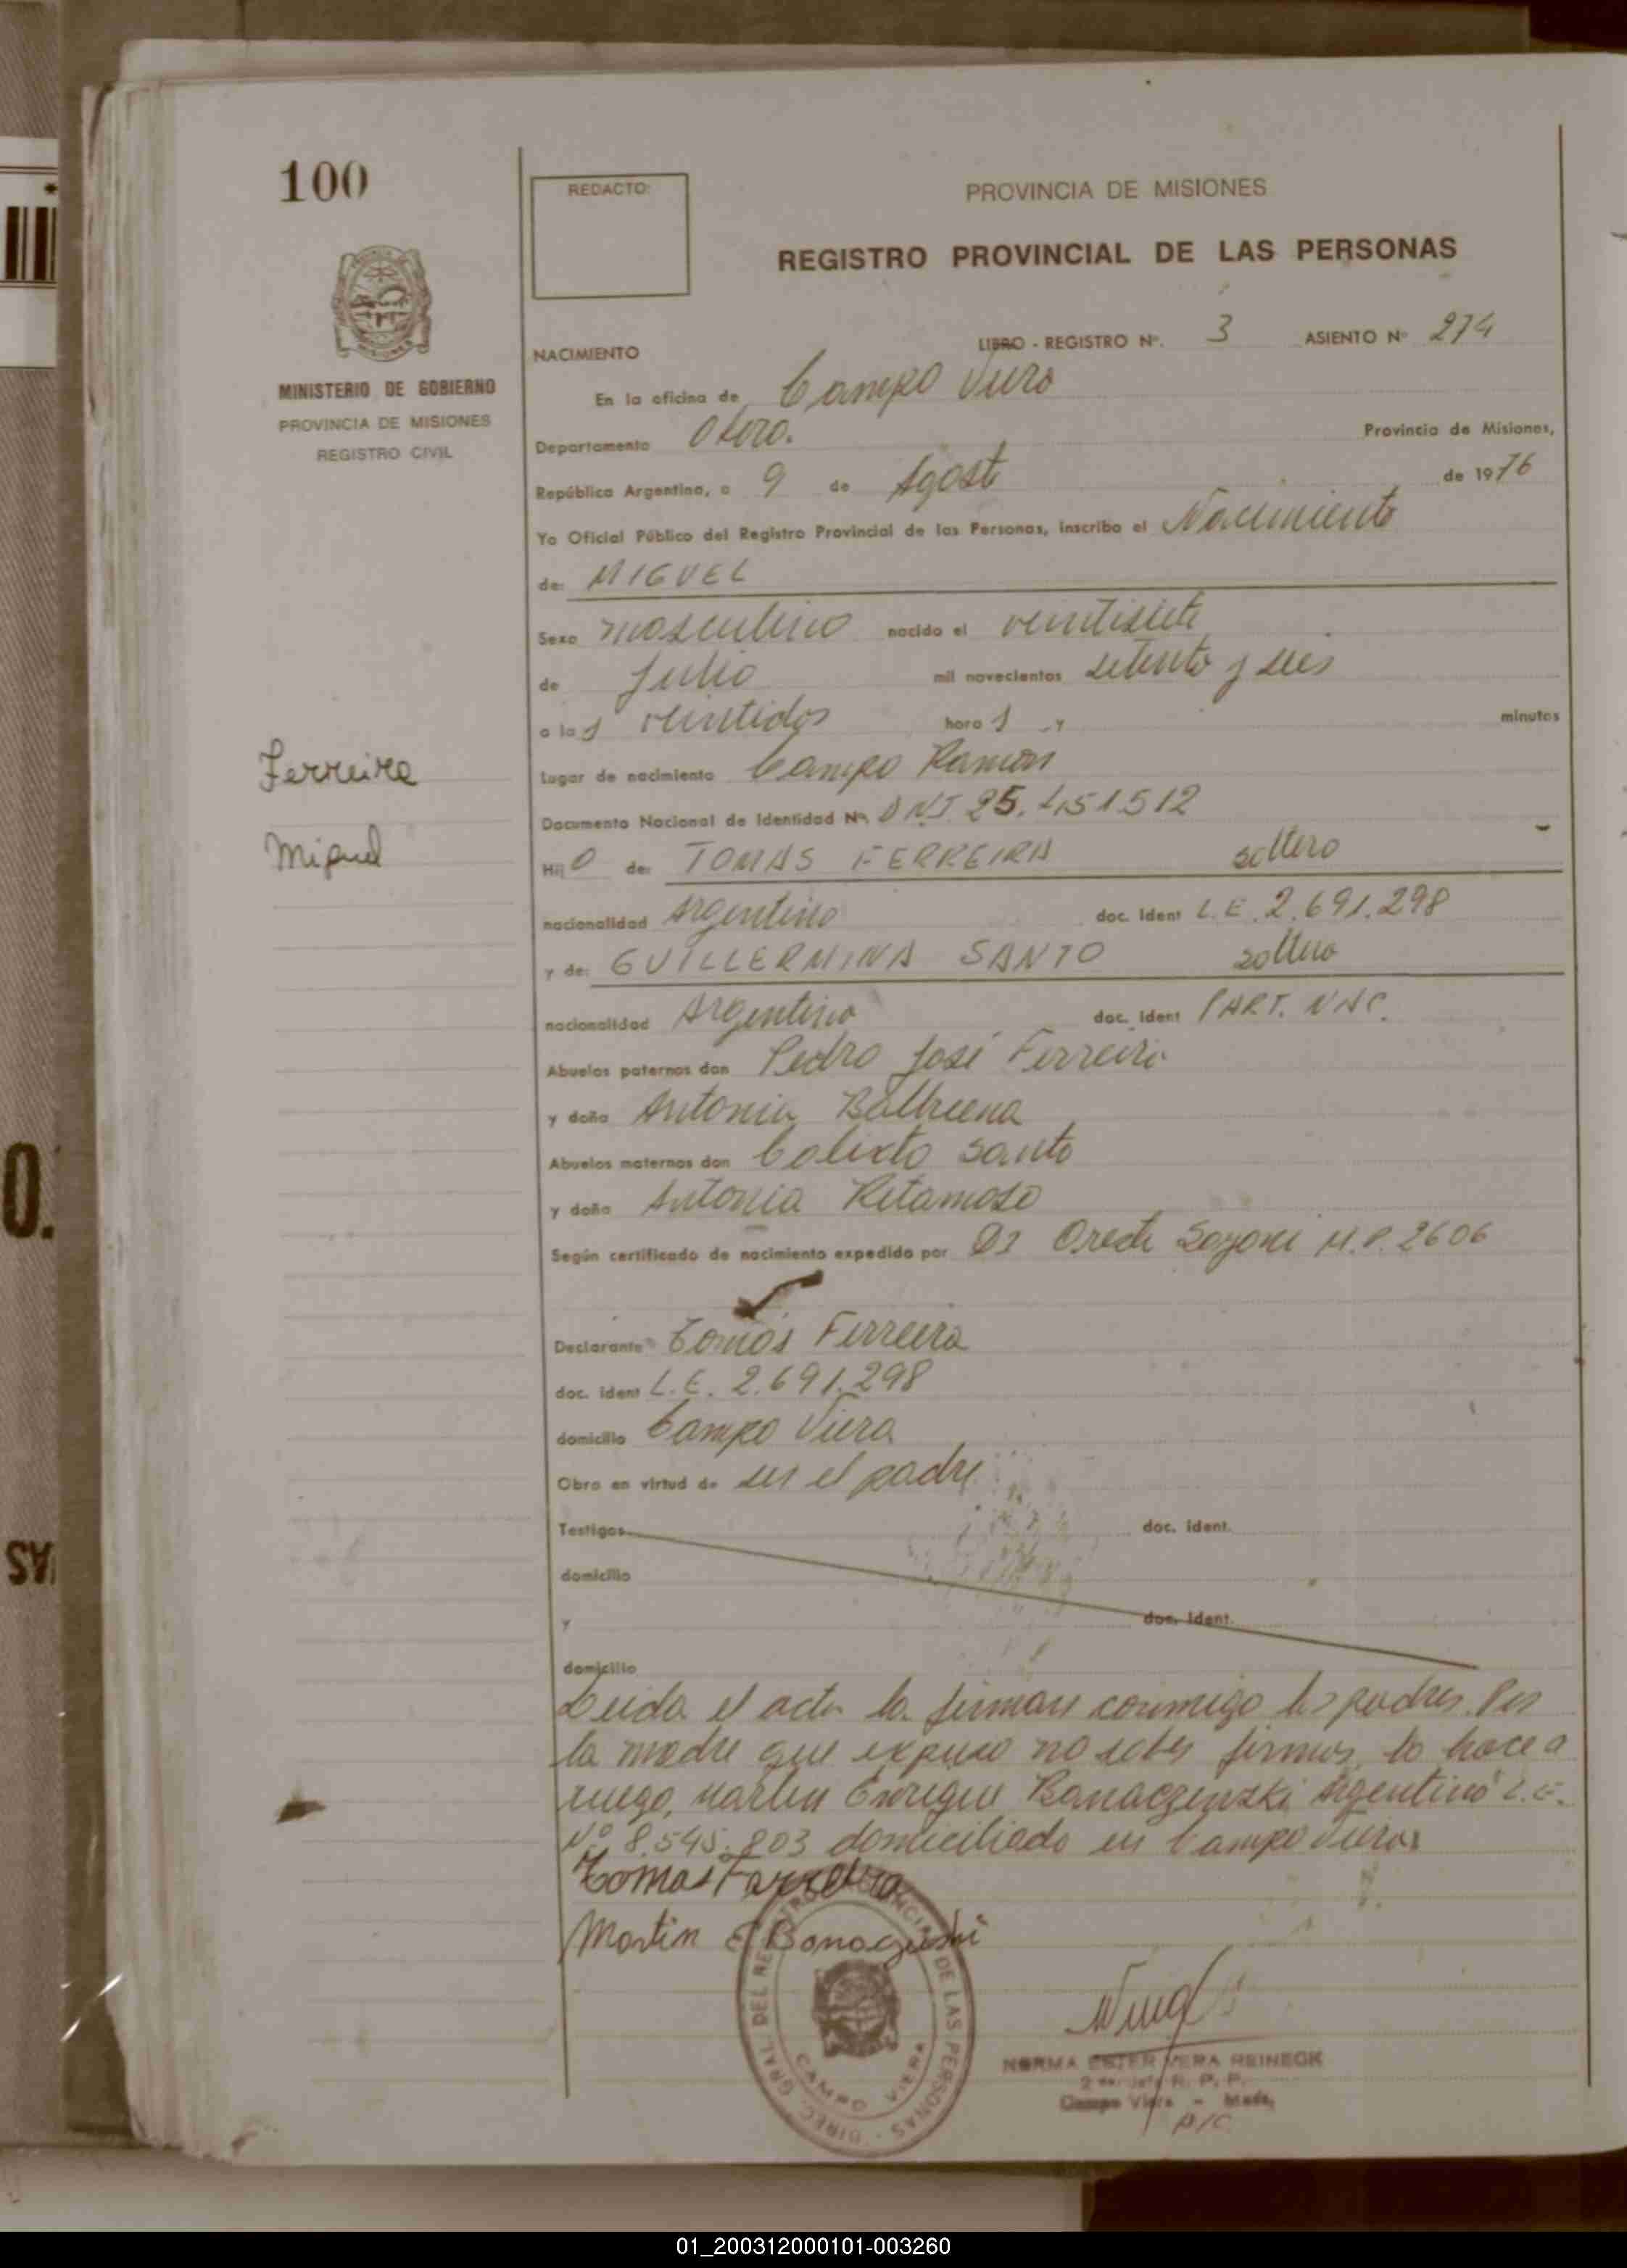 100
REDACTO:
PROVINCIA DE MISIONES
REGISTRO PROVINCIAL DE LAS PERSONAS
MINISTERIO DE GOBIERNO
PROVINCIA DE MISIONES
REGISTRO CIVIL
NACIMIENTO
LIBRO - REGISTRO Nº. 3 ASIENTO Nº 274
En la oficina de Campo Viera
Departamento Oberá.
Provincia de Misiones,
República Argentina, a 9 de Agosto de 1976
Yo Oficial Público del Registro Provincial de las Personas, inscribo el Nacimiento
de: MIGUEL
Sexo masculino nacido el veintisiete
de Julio mil novecientos setenta y seis
a las veintidos horas y minutos
Ferreira
Lugar de nacimiento Campo Ramon
Documento Nacional de Identidad Nº DNI 25.451512
Miguel
Hijo de: TOMAS FERREIRA soltero
nacionalidad Argentino doc. ident L.E. 2.691.298
y de: GUILLERMINA SANTO soltera
nacionalidad Argentina doc. ident PART. NAC.
Abuelos paternos don Pedro José Ferreira
y doña Antonia
Abuelos maternos don Calixto Santo
y doña Antonia Retamoso
Según certificado de nacimiento expedido por Dr Oreste M.P. 2606
Declarante Tomás Ferreira
doc. ident L.E. 2.691.298
domicilio Campo Viera
Obra en virtud de ser el padre
Testigos doc. ident.
domicilio
y doc. ident.
domicilio
Leida el acta la firman conmigo los padres. Por
la madre que expuso no saber firmar, lo hace a
ruego, Martin Enrique Argentino L.E.
Nº 8.545.803 domiciliado en Campo Viera
Tomas Farreira
Martin E
DIREC. GRAL. DEL REGISTRO PROVINCIAL DE LAS PERSONAS
CAMPO VIERA
NORMA ESTER VERA REINECK
R. P. P.
Campo Viera - Mnes.
P/C
01_200312000101-003260